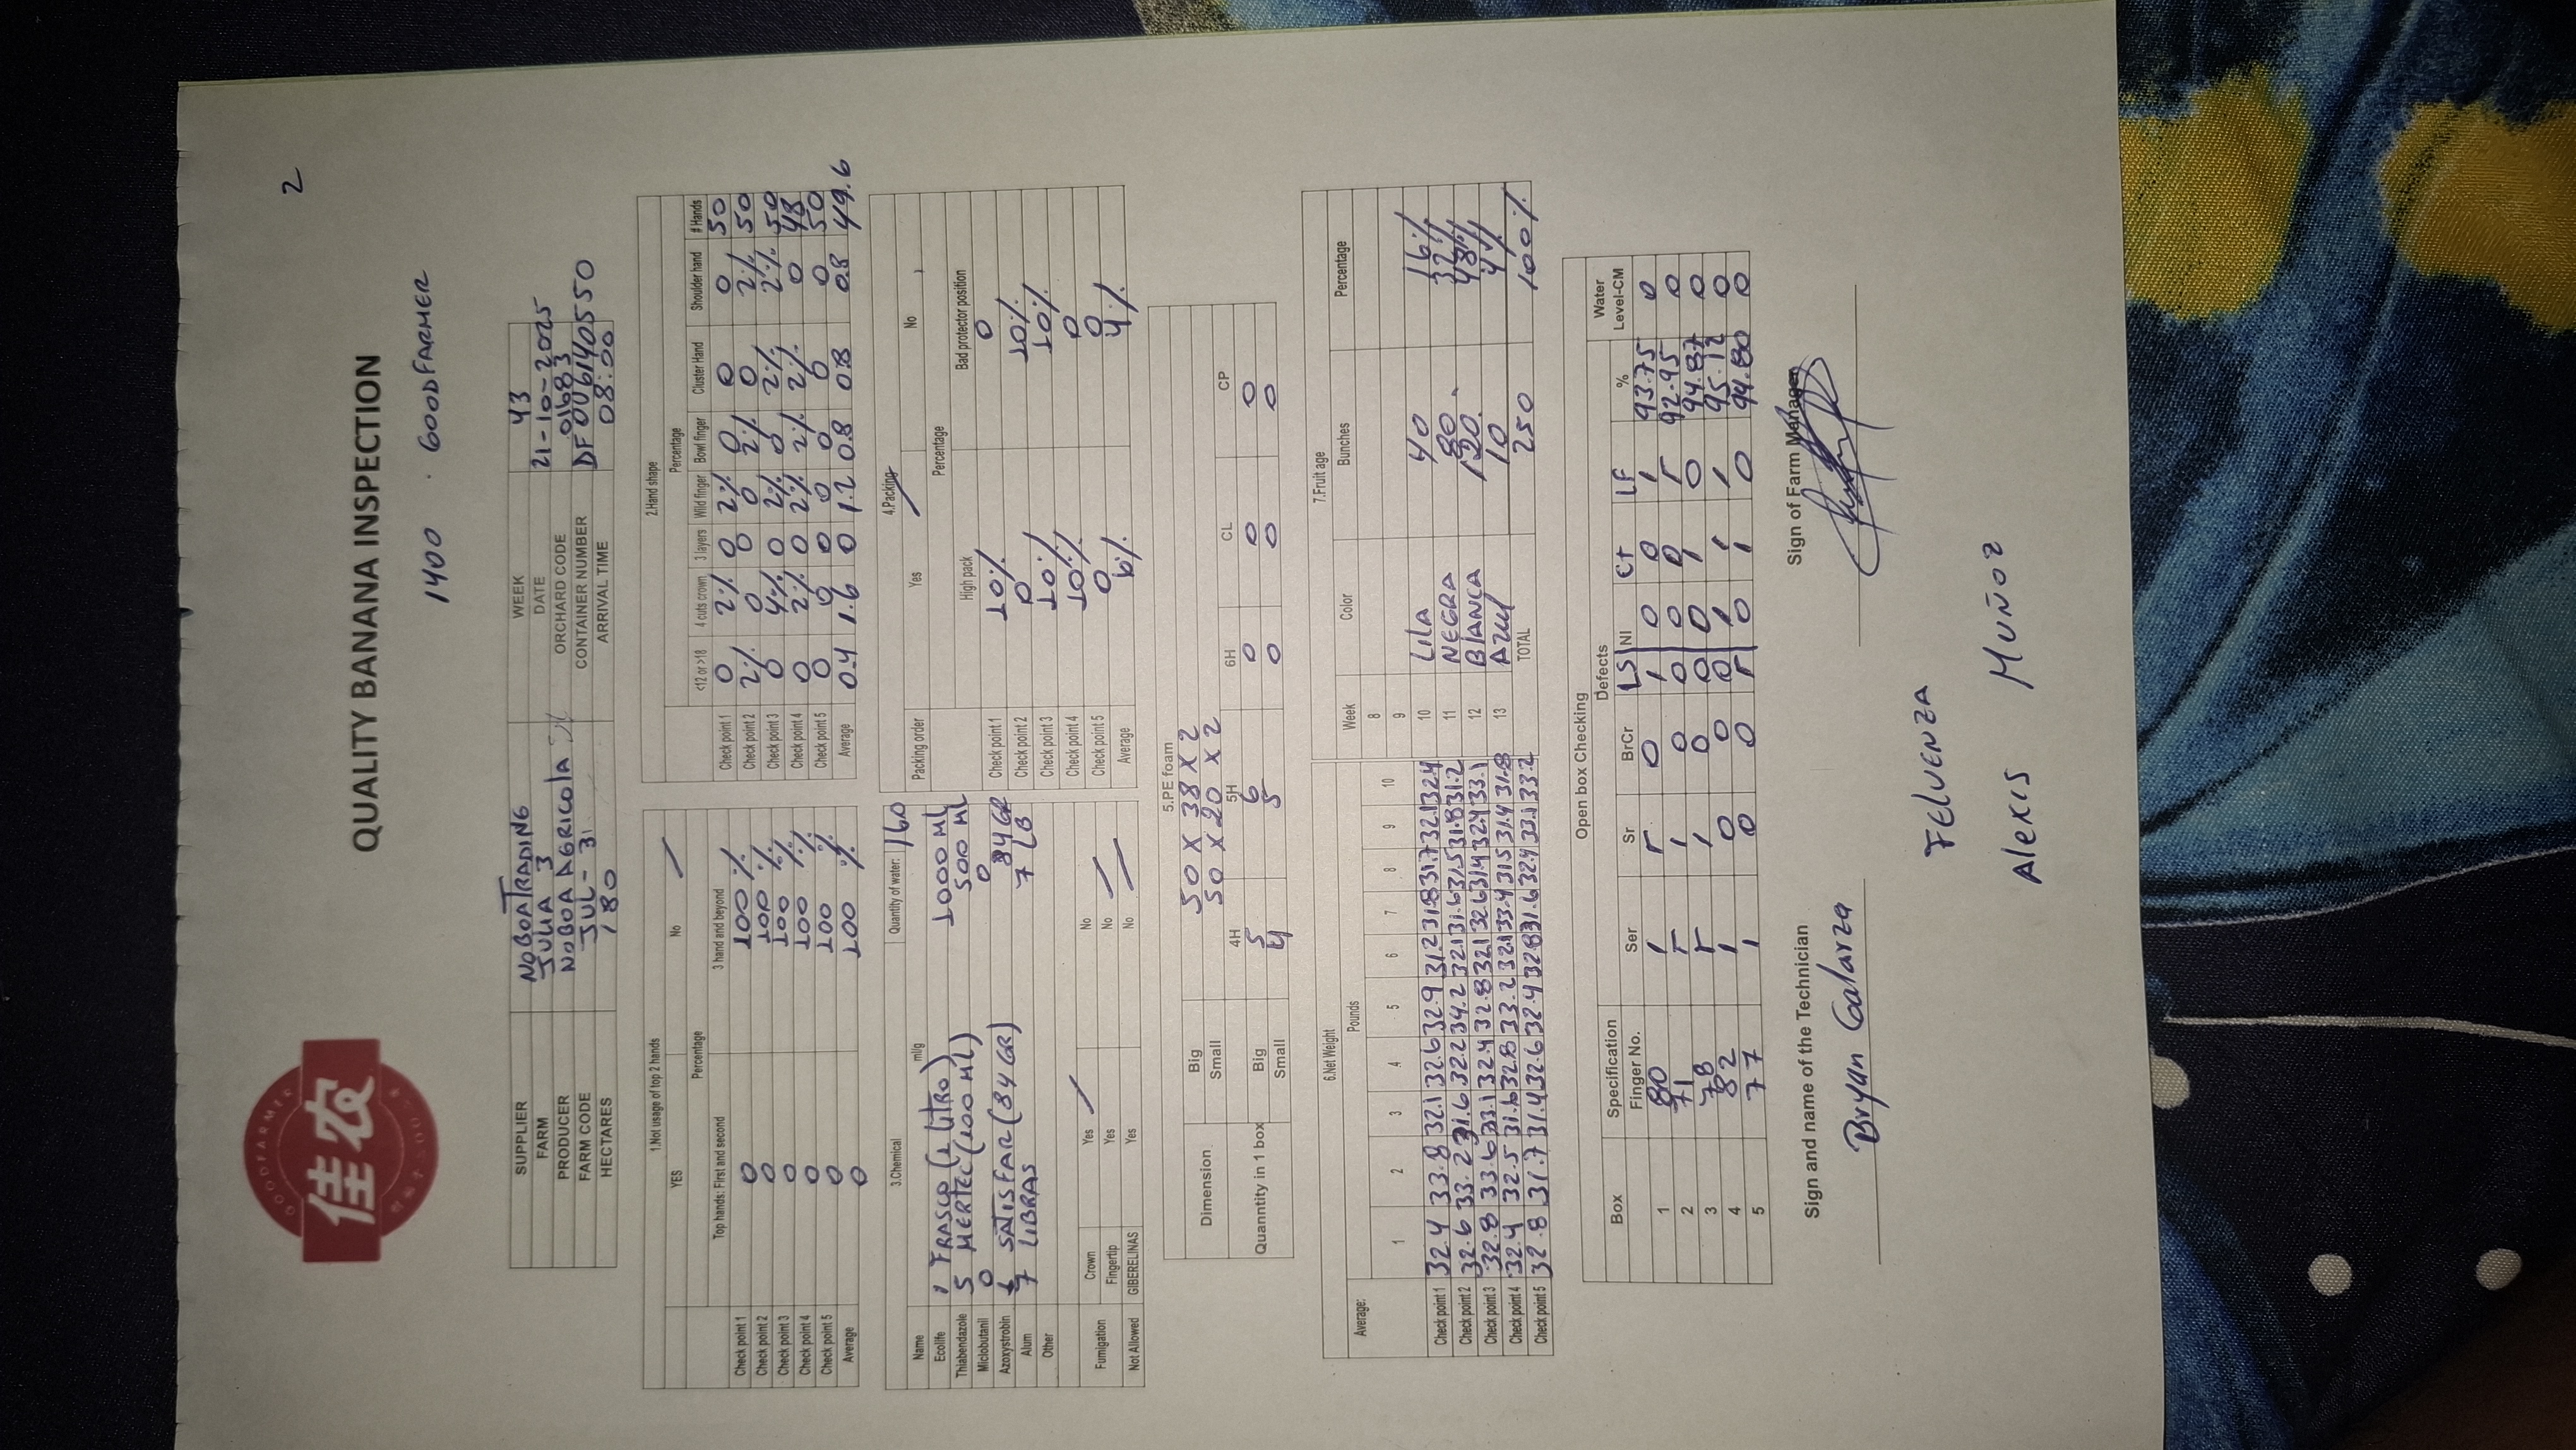 GOODFARMER
佳农
2
QUALITY BANANA INSPECTION
1400 GOODFARMER
SUPPLIER NOBOATRADING WEEK 43
FARM JULIA 3 DATE 21-10-2025
PRODUCER NOBOA AGRICOLA ORCHARD CODE 01683
FARM CODE JUL-31 CONTAINER NUMBER DFOU6140550
HECTARES 180 ARRIVAL TIME 08:00
1.Not usage of top 2 hands
YES No /
Percentage
Top hands: First and second 3 hand and beyond
Check point 1 0 100 %
Check point 2 0 100 %
Check point 3 0 100 %
Check point 4 0 100 %
Check point 5 0 100 %
Average 0 100 %
2.Hand shape
Percentage
<12 or >18 4 cuts crown 3 layers Wild finger Bowl finger Cluster Hand Shoulder hand # Hands
Check point 1 0 2% 0 2% 0 0 0 50
Check point 2 2% 0 0 0 2% 0 2% 50
Check point 3 0 4% 0 2% 0 2% 2% 50
Check point 4 0 2% 0 2% 2% 2% 0 48
Check point 5 0 0 0 0 0 0 0 50
Average 0.4 1.6 0 1.2 0.8 0.8 0.8 49.6
3.Chemical Quantity of water: 160
Name ml/g
Ecolife 1 FRASCO (1 LITRO) 1000 ML
Thiabendazole 5 MERTEC (100 ML) 500 ML
Miclobutanil 0 0
Azoxystrobin 1 SATISFAR (84 GR) 84 GR
Alum 7 LIBRAS 7 LB
Other
Fumigation Crown Yes / No
Fingertip Yes No /
Not Allowed GIBERELINAS Yes No /
4.Packing
Packing order Yes / No
Percentage
High pack Bad protector position
Check point 1 10% 0
Check point 2 0 10%
Check point 3 10% 10%
Check point 4 10% 0
Check point 5 0 0
Average 6% 4%
5.PE foam
Dimension Big 50 X 38 X 2
Small 50 X 20 X 2
4H 5H 6H CL CP
Quanntity in 1 box Big 5 6 0 0 0
Small 4 5 0 0 0
6.Net Weight
Average: Pounds
1 2 3 4 5 6 7 8 9 10
Check point 1 32.4 33.8 32.1 32.6 32.9 31.2 31.8 31.7 32.1 32.4
Check point 2 32.6 33.2 31.6 32.2 34.2 32.1 31.6 31.5 31.8 31.2
Check point 3 32.8 33.6 33.1 32.4 32.8 32.1 32.6 31.4 32.4 33.1
Check point 4 32.4 32.5 31.6 32.8 33.2 32.1 33.4 31.5 31.4 31.8
Check point 5 32.8 31.7 31.4 32.6 32.4 32.8 31.6 32.4 33.1 33.2
7.Fruit age
Week Color Bunches Percentage
8
9
10 LILA 40 16%
11 NEGRA 80 32%
12 BLANCA 120 48%
13 AZUL 10 4%
TOTAL 250 100%
Open box Checking
Box Specification Defects Water Level-CM
Finger No. Ser Sr BrCr LS NI Ct LF %
1 80 1 r 0 1 0 0 1 93.75 0
2 71 r 1 0 0 0 0 r 92.95 0
3 78 r 1 0 0 0 1 0 94.87 0
4 82 1 0 0 0 1 1 1 95.12 0
5 77 1 0 0 r 0 1 0 94.80 0
Sign and name of the Technician Sign of Farm Manager
Bryan Galarza
FELVENZA
Alexis MUÑOZ